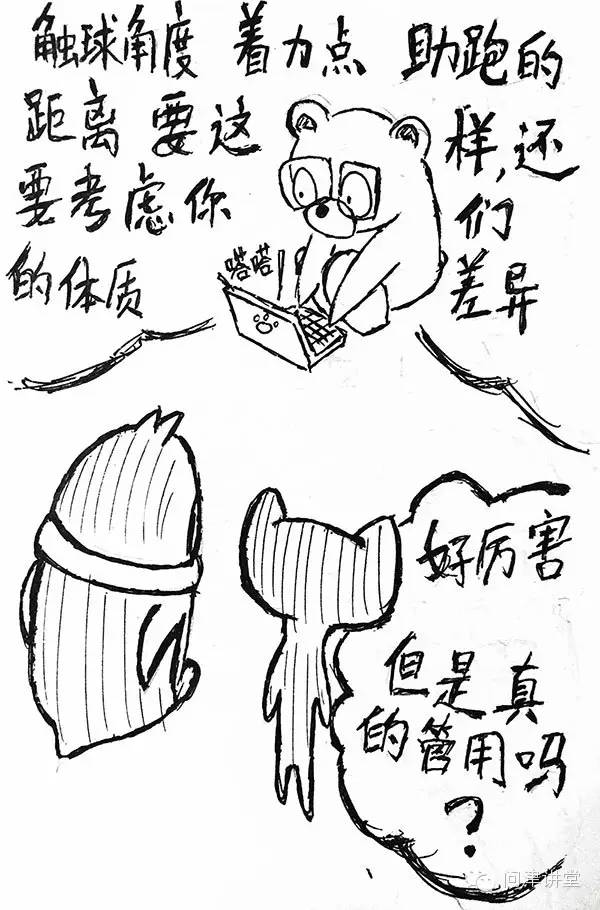 触球角度 着力点 助跑的
距离 要这样,还
要考虑你们
的体质差异
嗒嗒
好厉害
但是真
的管用吗
?
问津讲堂